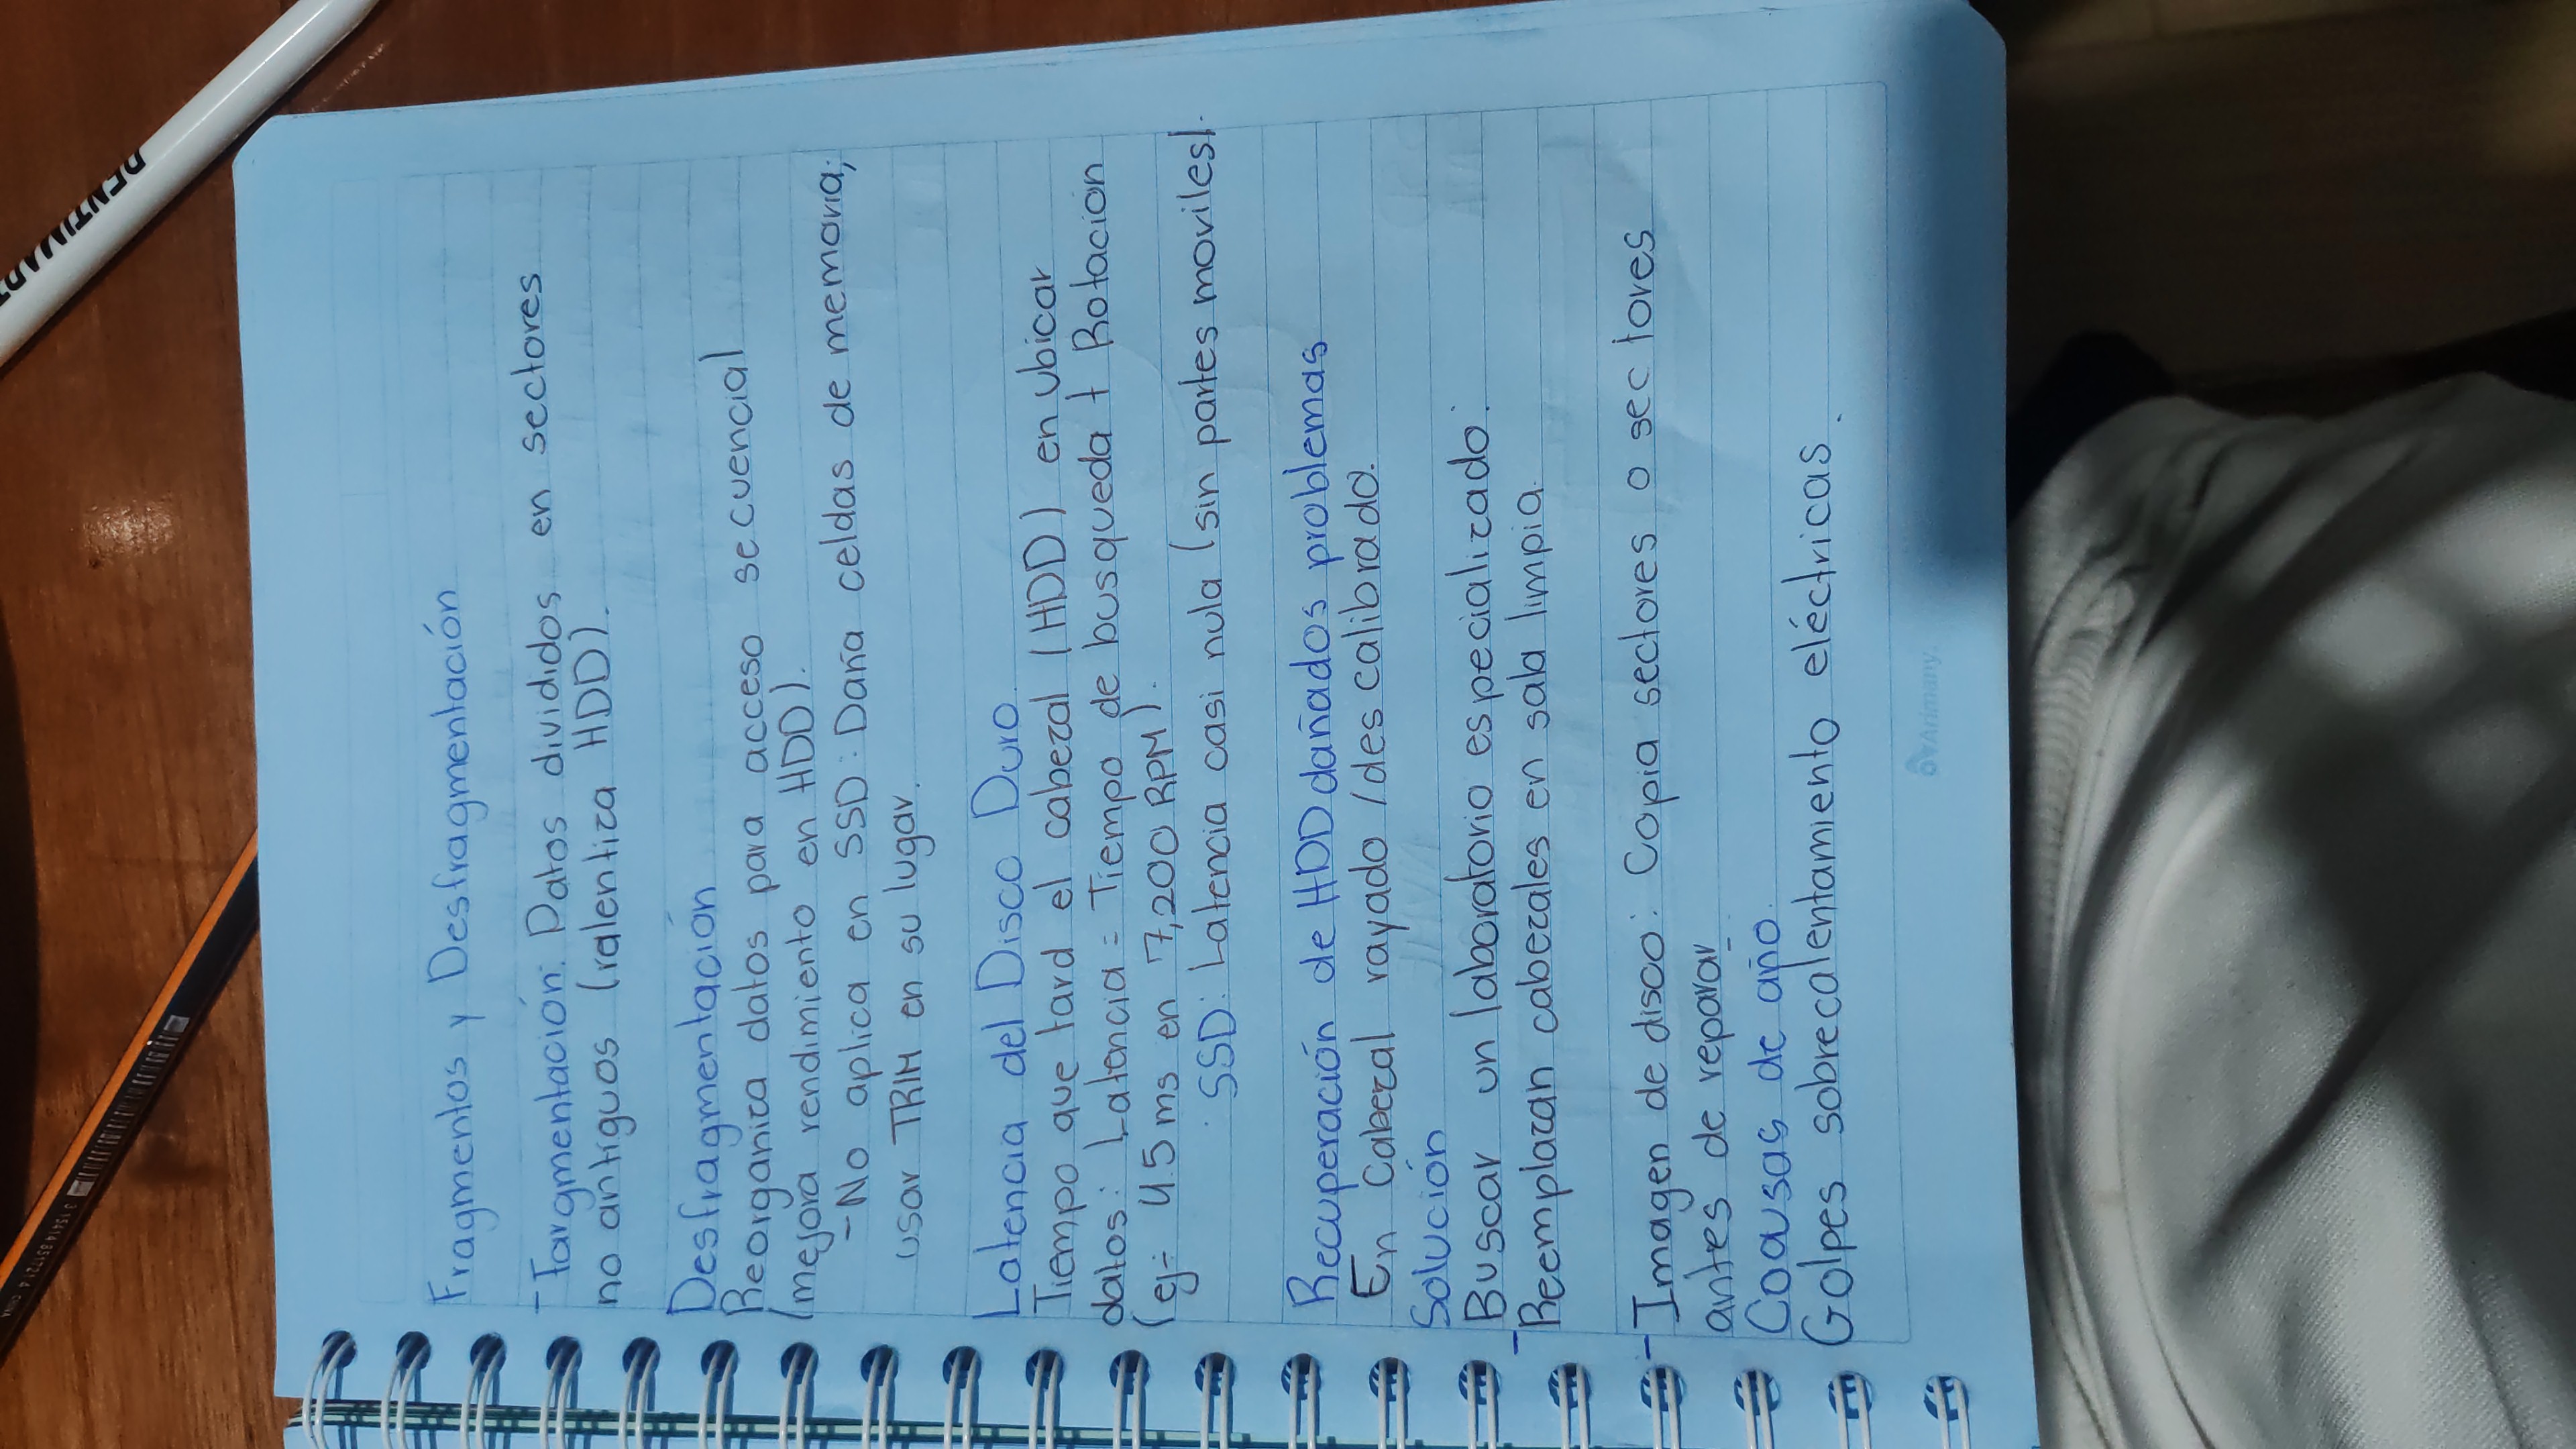 Fragmentos y Desfragmentación
- Fargmentación: Datos divididos en sectores
no antiguos (ralentiza HDD).
Desfragmentación
Reorganiza datos para acceso secuencial
(mejora rendimiento en HDD).
- No aplica en SSD: Daña celdas de memoria;
usar TRIM en su lugar.
Latencia del Disco Duro.
Tiempo que tard el cabezal (HDD) en ubicar
datos: Latencia = Tiempo de busqueda + Rotacion
(ej= 4.5 ms en 7,200 RPM).
· SSD: Latencia casi nula (sin partes moviles).
Recuperación de HDD dañados problemas
En Cabezal rayado /des calibrado.
Solución
Buscar un laboratorio especializado.
- Reemplazan cabezales en sala limpia.
- Imagen de disco: Copia sectores o sectores
antes de reparar
Coausas de año.
Golpes sobrecalentamiento eléctricas.
Arimany.
3 15414 85721 4 CHINA